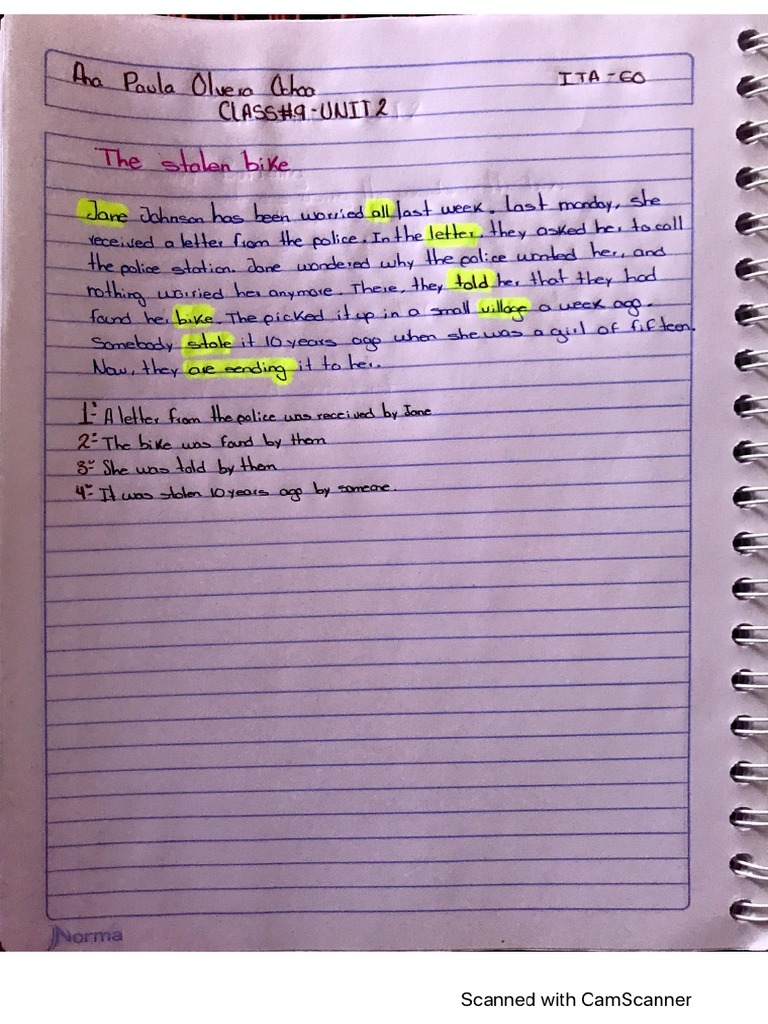 Ana Paula Olvera Ochoa ITA-EO
CLASS#9-UNIT2
The stolen bike
Jane Johnson has been worried all last week. Last monday, she
received a letter from the police. In the letter, they asked her to call
the police station. Jane wondered why the police wanted her, and
nothing worried her anymore. There, they told her that they had
found her bike. The picked it up in a small village a week ago.
Somebody stole it 10 years ago when she was a girl of fifteen.
Now, they are sending it to her.
1- A letter from the police was received by Jane
2- The bike was found by them
3- She was told by them
4- It was stolen 10 years ago by someone.
Norma
Scanned with CamScanner